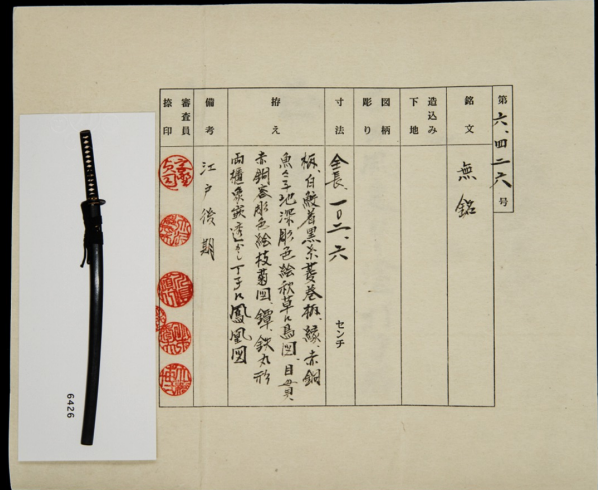 第六、四二六号
銘文
無銘
造込み
下地
図柄
彫り
寸法
全長、一〇二、六 センチ
拵え
柄、白鮫着黒糸菱巻柄、縁、赤銅
魚々子地深彫色絵秋草に鳥図、目貫
赤銅容彫色絵枝菊図、鐔、鉄丸形
両櫃象嵌透かし丁子に鳳凰図
備考
江戸後期
審査員
捺印
6426